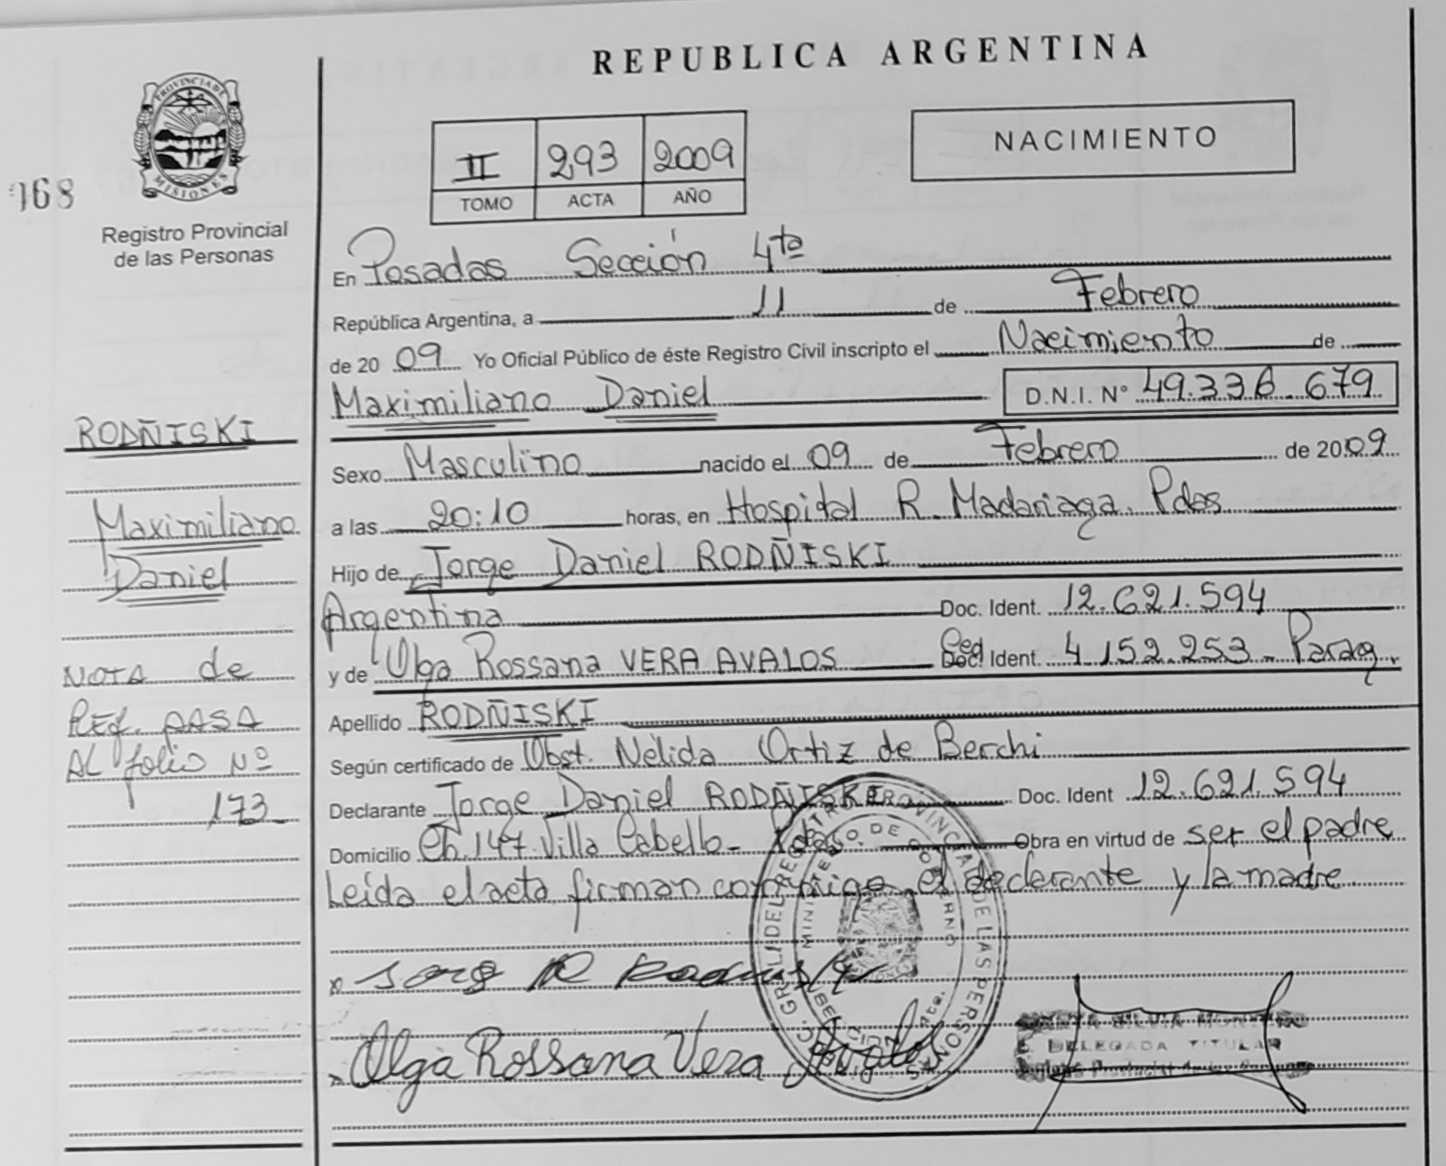 REPUBLICA ARGENTINA
PROVINCIA DE MISIONES
168
Registro Provincial
de las Personas
II 293 2009
TOMO ACTA AÑO
NACIMIENTO
En Posadas Sección 4ta
República Argentina, a 11 de Febrero
de 20 09 Yo Oficial Público de éste Registro Civil inscripto el Nacimiento de
Maximiliano Daniel D.N.I. Nº 49.336.679
Sexo Masculino nacido el 09 de Febrero de 20 09
a las 20:10 horas, en Hospital R. Madariaga. Pdas
Hijo de Jorge Daniel RODÑISKI
Argentina Doc. Ident. 12.621.594
y de Olga Rossana VERA AVALOS Ced Doc. Ident. 4.152.253 - Parag.
Apellido RODÑISKI
Según certificado de Obst. Nélida Ortiz de Berchi
Declarante Jorge Daniel RODÑISKI Doc. Ident 12.621.594
Domicilio Ch. 147 Villa Cabello - Pdas. Obra en virtud de ser el padre
Leída el acta firman conmigo el declarante y la madre
Olga Rossana Vera Avalos
DELEGADA TITULAR
RODÑISKI
Maximiliano
Daniel
NOTA de
REF. PASA
AL folio Nº
173